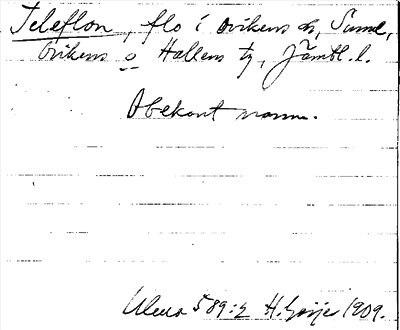 Teleflon, flo i Ovikens sn, Sunne,
Ovikens o Hallens tg, Jämtl. l.
Obekant namn.
Ulma 589:2 H. Geijer 1909.